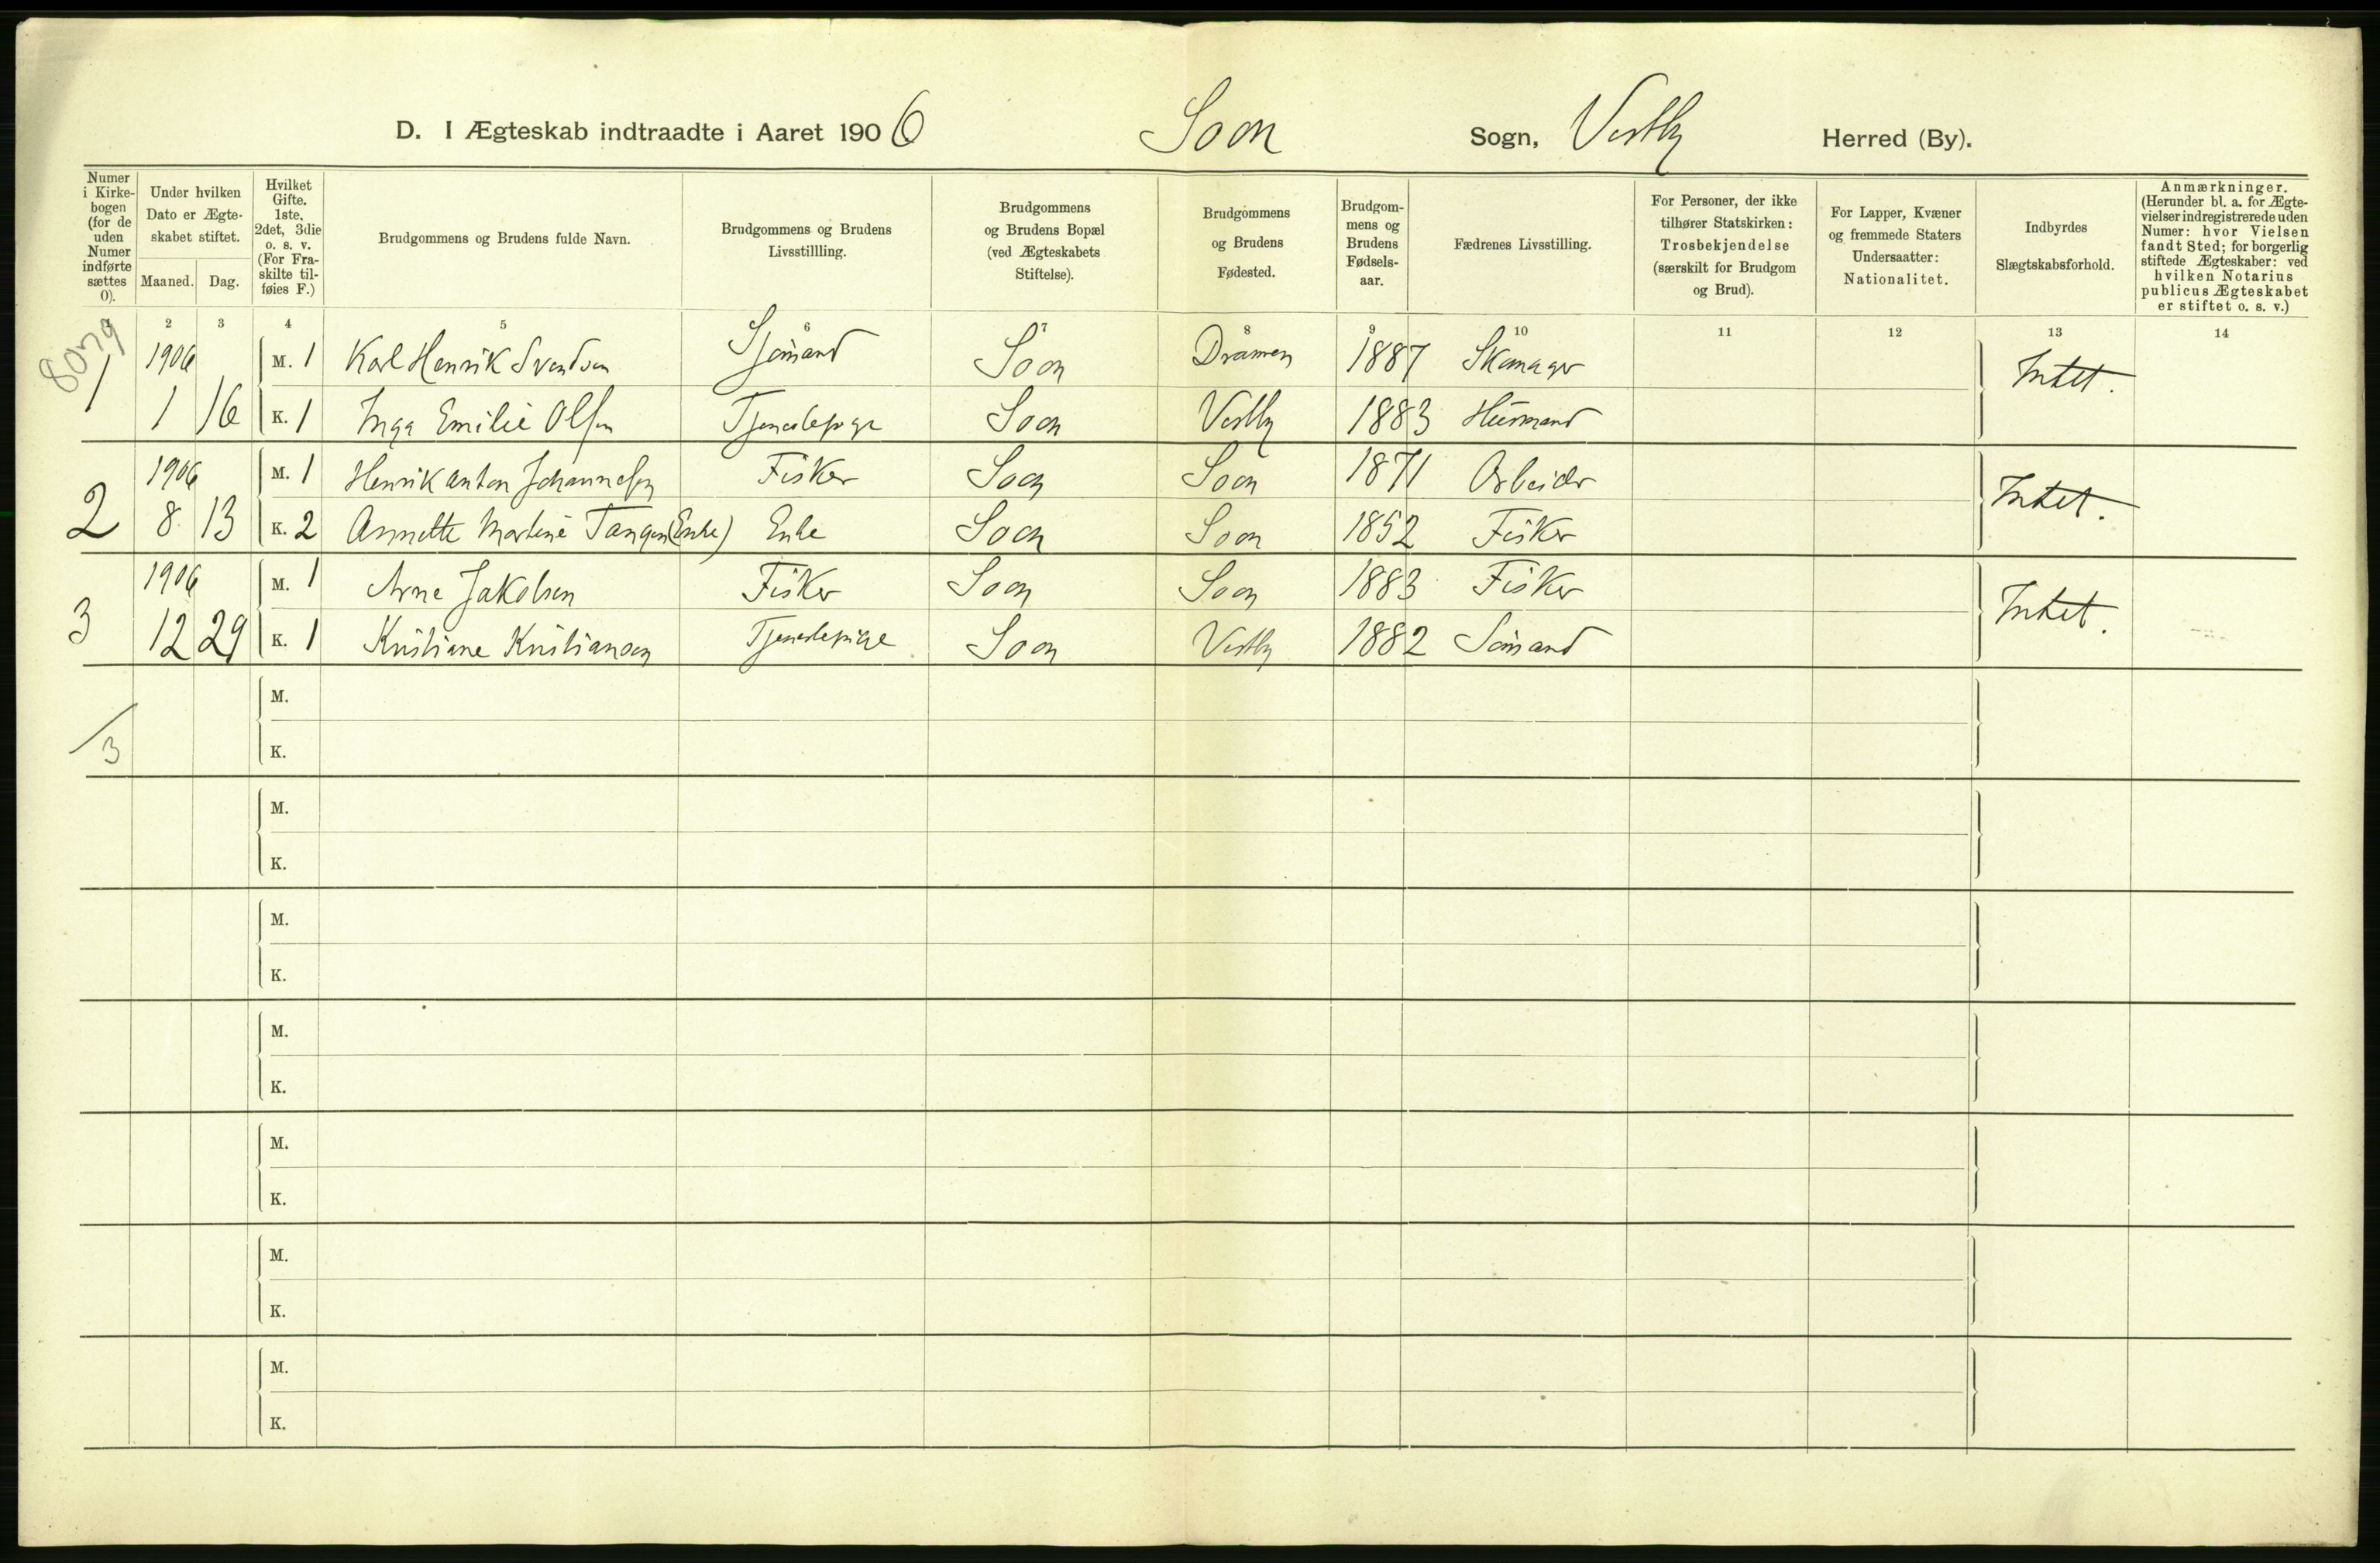 D. I Ægteskab indtraadte i Aaret 1906 Soon Sogn, Vestby Herred (By).
Numer i Kirkebogen (for de uden Numer indførte sættes 0).
Under hvilken Dato er Ægteskabet stiftet.
Maaned. Dag.
Hvilket Gifte. 1ste, 2det, 3die o. s. v. (For Fraskilte tilføies F.)
Brudgommens og Brudens fulde Navn.
Brudgommens og Brudens Livsstillling.
Brudgommens og Brudens Bopæl (ved Ægteskabets Stiftelse).
Brudgommens og Brudens Fødested.
Brudgommens og Brudens Fødselsaar.
Fædrenes Livsstilling.
For Personer, der ikke tilhører Statskirken: Trosbekjendelse (særskilt for Brudgom og Brud).
For Lapper, Kvæner og fremmede Staters Undersaatter: Nationalitet.
Indbyrdes Slægtskabsforhold.
Anmærkninger. (Herunder bl. a. for Ægtevielser indregistrerede uden Numer: hvor Vielsen fandt Sted; for borgerlig stiftede Ægteskaber: ved hvilken Notarius publicus Ægteskabet er stiftet o. s. v.)
2 3 4 5 6 7 8 9 10 11 12 13 14
1 1906 M. 1 Karl Henrik Svendsen Sjømand Soon Dramen 1887 Skomager Intet.
1 16 K. 1 Inga Emilie Olsen Tjenestepige Soon Vestby 1883 Husmand
2 1906 M. 1 Henrik Anton Johannesen Fisker Soon Soon 1871 Arbeider Intet.
8 13 K. 2 Annette Martine Tangen (Enke) Enke Soon Soon 1852 Fisker
3 1906 M. 1 Arne Jakobsen Fisker Soon Soon 1883 Fisker Intet.
12 29 K. 1 Kristiane Kristiansen Tjenestepige Soon Vestby 1882 Sømand
M.
/3 K.
M.
K.
M.
K.
M.
K.
M.
K.
M.
K.
M.
K.